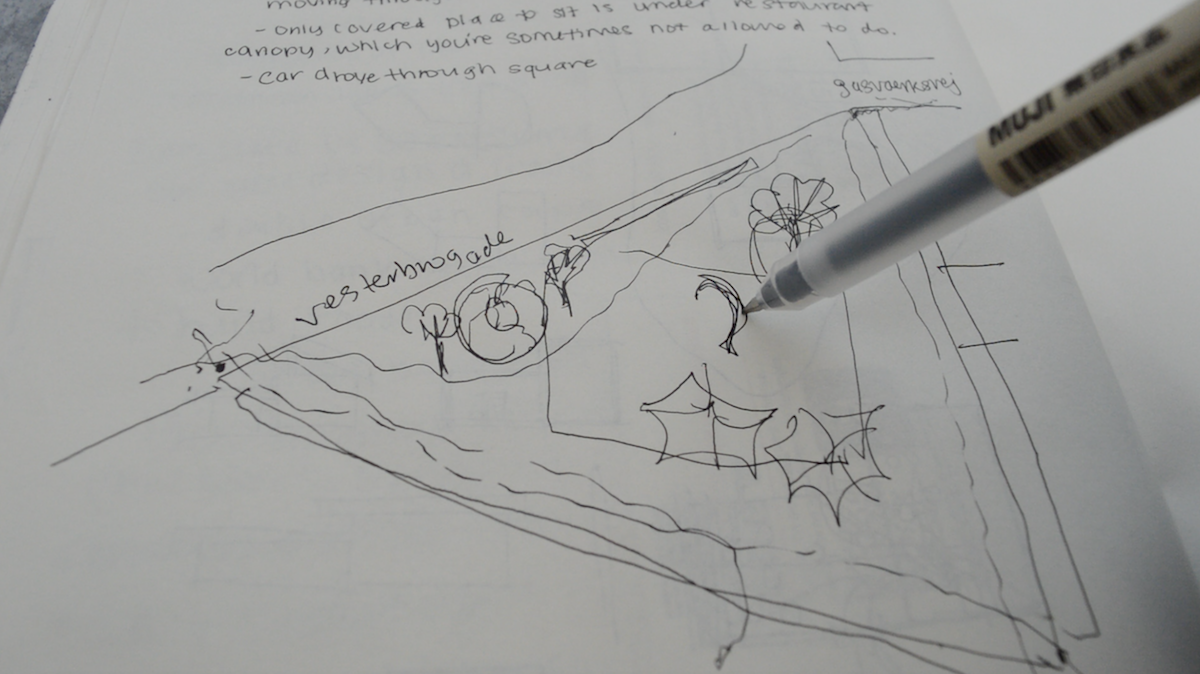 moving
- only covered place to sit is under restaurant
canopy, which you're sometimes not allowed to do.
- car drove through square
gasvaerksvej
vesterbrogade
MUJI